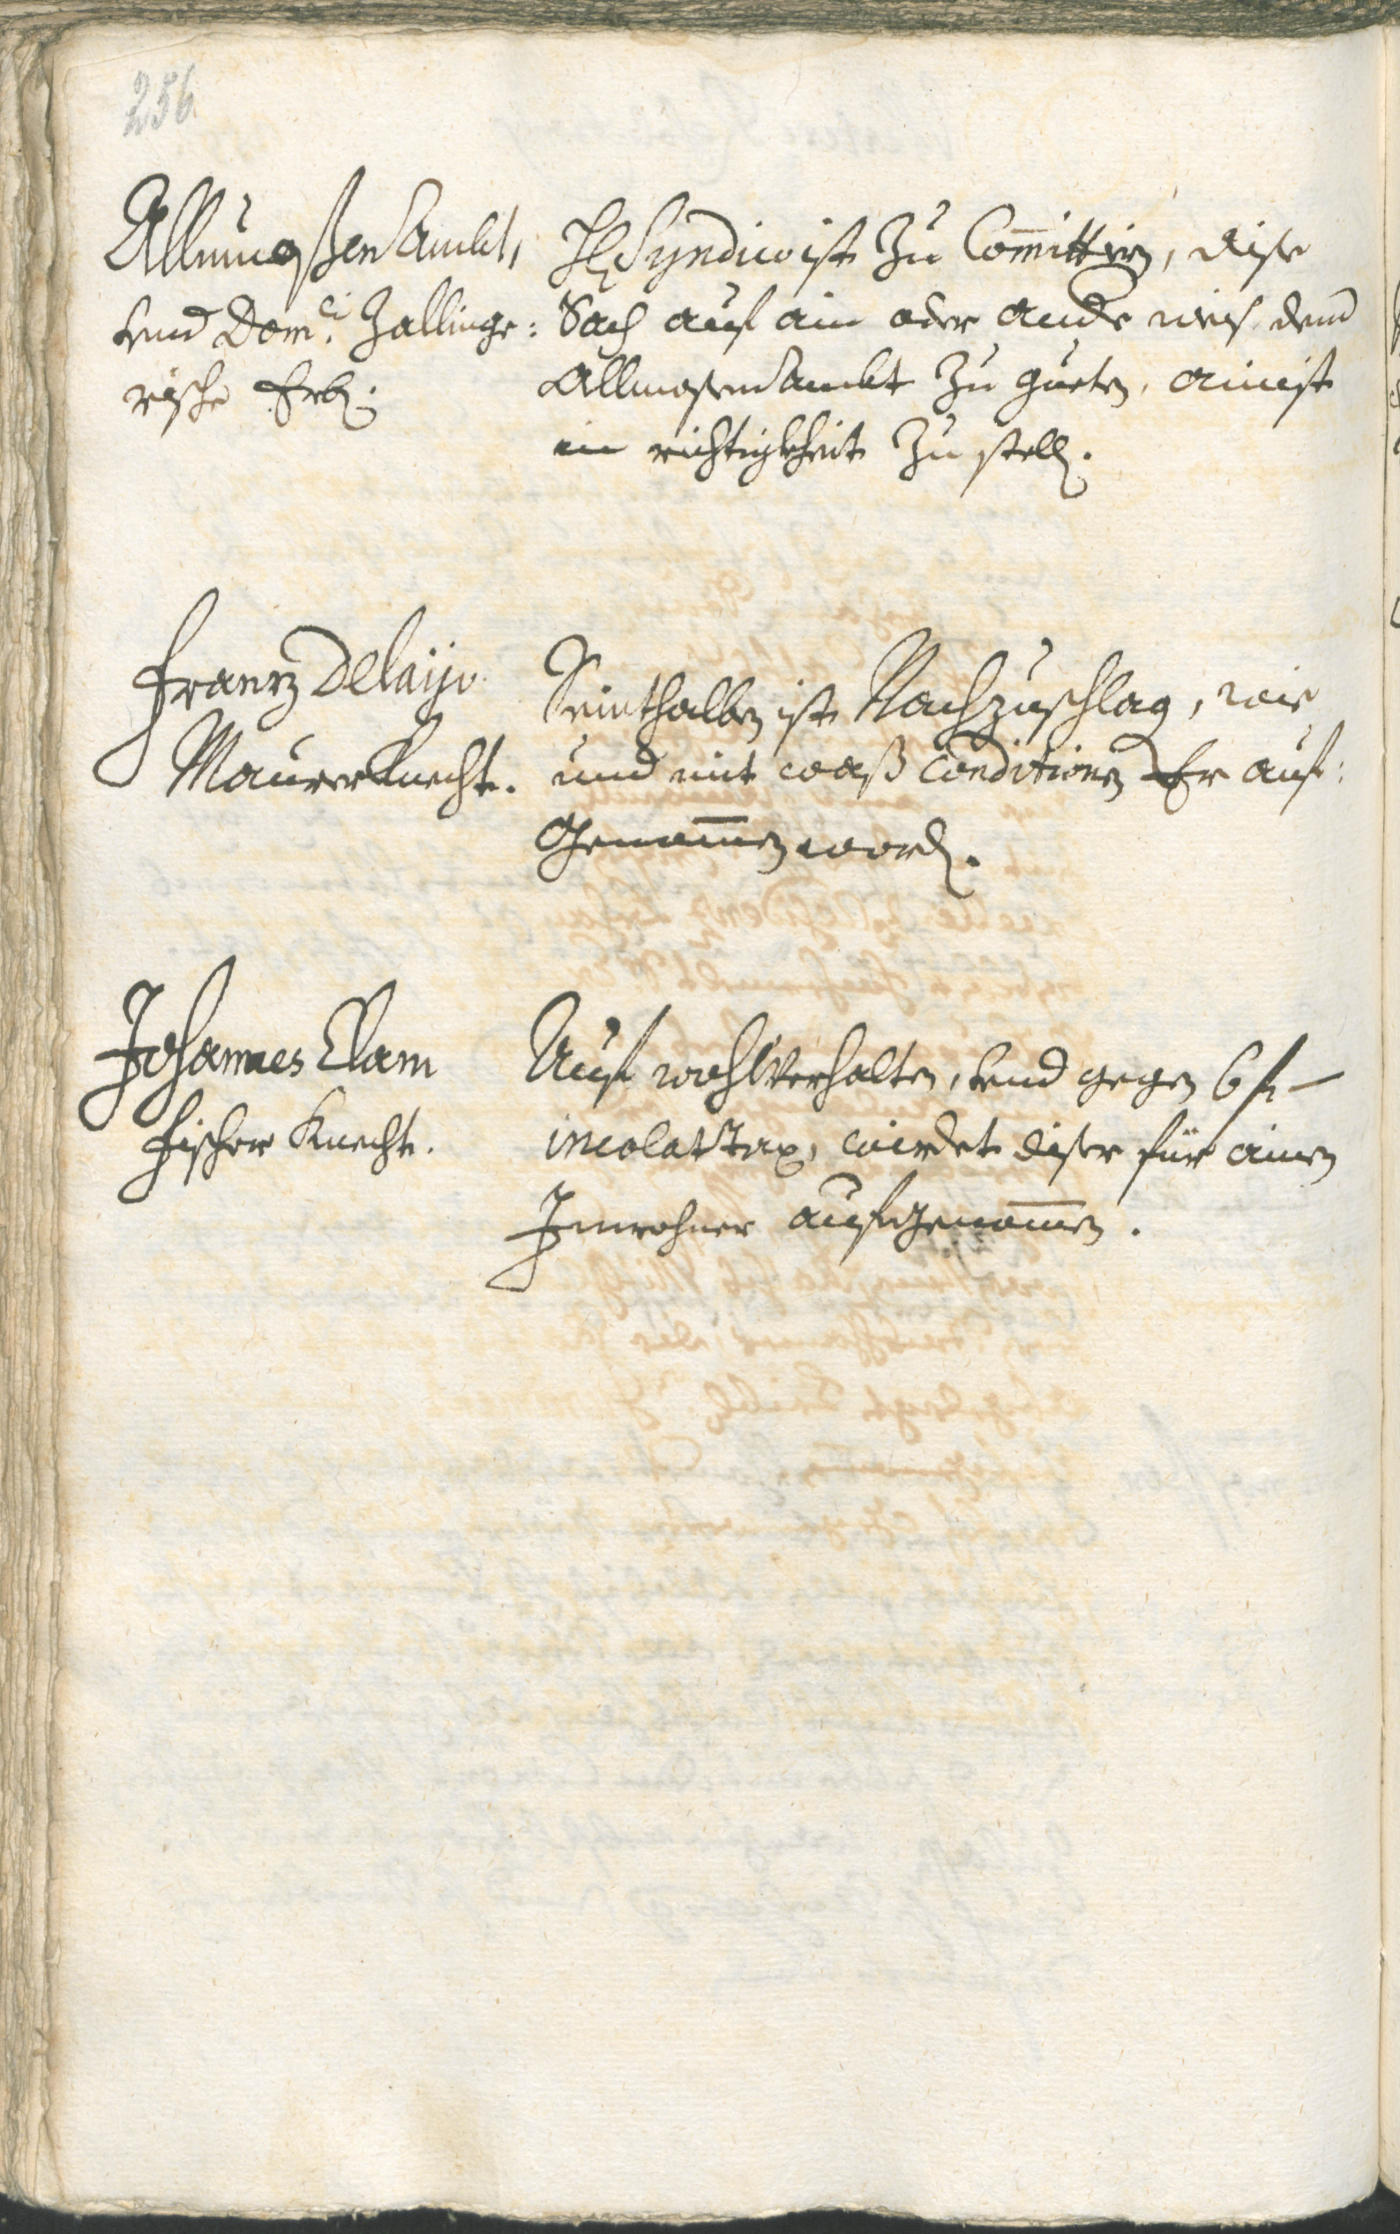 256
Allmueßen Ambt,
vnd Dom:ci Zallinge:
rische Erb:
H: Syndico ist zu Com̄ittirn, dise
Sach auf ain oder ande weis dem
Allmosen Ambt zu gueten, ainist
in richtigkheit zu stell.
Franz Delaijo
Maurer Knecht.
Seinthalben ist Nachzuschlag, wie
und mit waß Conditionen Er auf:
Genom̄en word.
Johannes Clam
fischer Knecht.
Auf wohlverhalten, vnd gegen 6 f –
incolat Tax, wirdet diser für ainen
Inwohner aufgenom̄en.